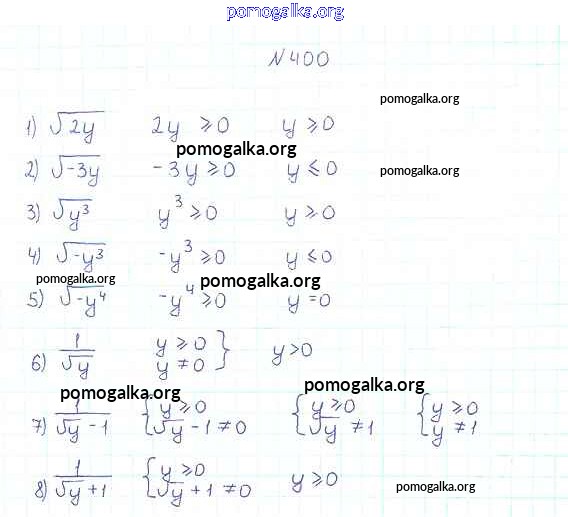 pomogalka.org
N 400
pomogalka.org
1) √2y 2y ⩾ 0 y ⩾ 0
pomogalka.org
2) √-3y -3y ⩾ 0 y ⩽ 0 pomogalka.org
3) √y³ y³ ⩾ 0 y ⩾ 0
4) √-y³ -y³ ⩾ 0 y ⩽ 0
pomogalka.org pomogalka.org
5) √-y⁴ -y⁴ ⩾ 0 y = 0
6) 1/√y y ⩾ 0 y ≠ 0 } y > 0
pomogalka.org pomogalka.org
7) 1/(√y - 1) { y ⩾ 0 √y - 1 ≠ 0 { y ⩾ 0 √y ≠ 1 { y ⩾ 0 y ≠ 1
8) 1/(√y + 1) { y ⩾ 0 √y + 1 ≠ 0 y ⩾ 0 pomogalka.org